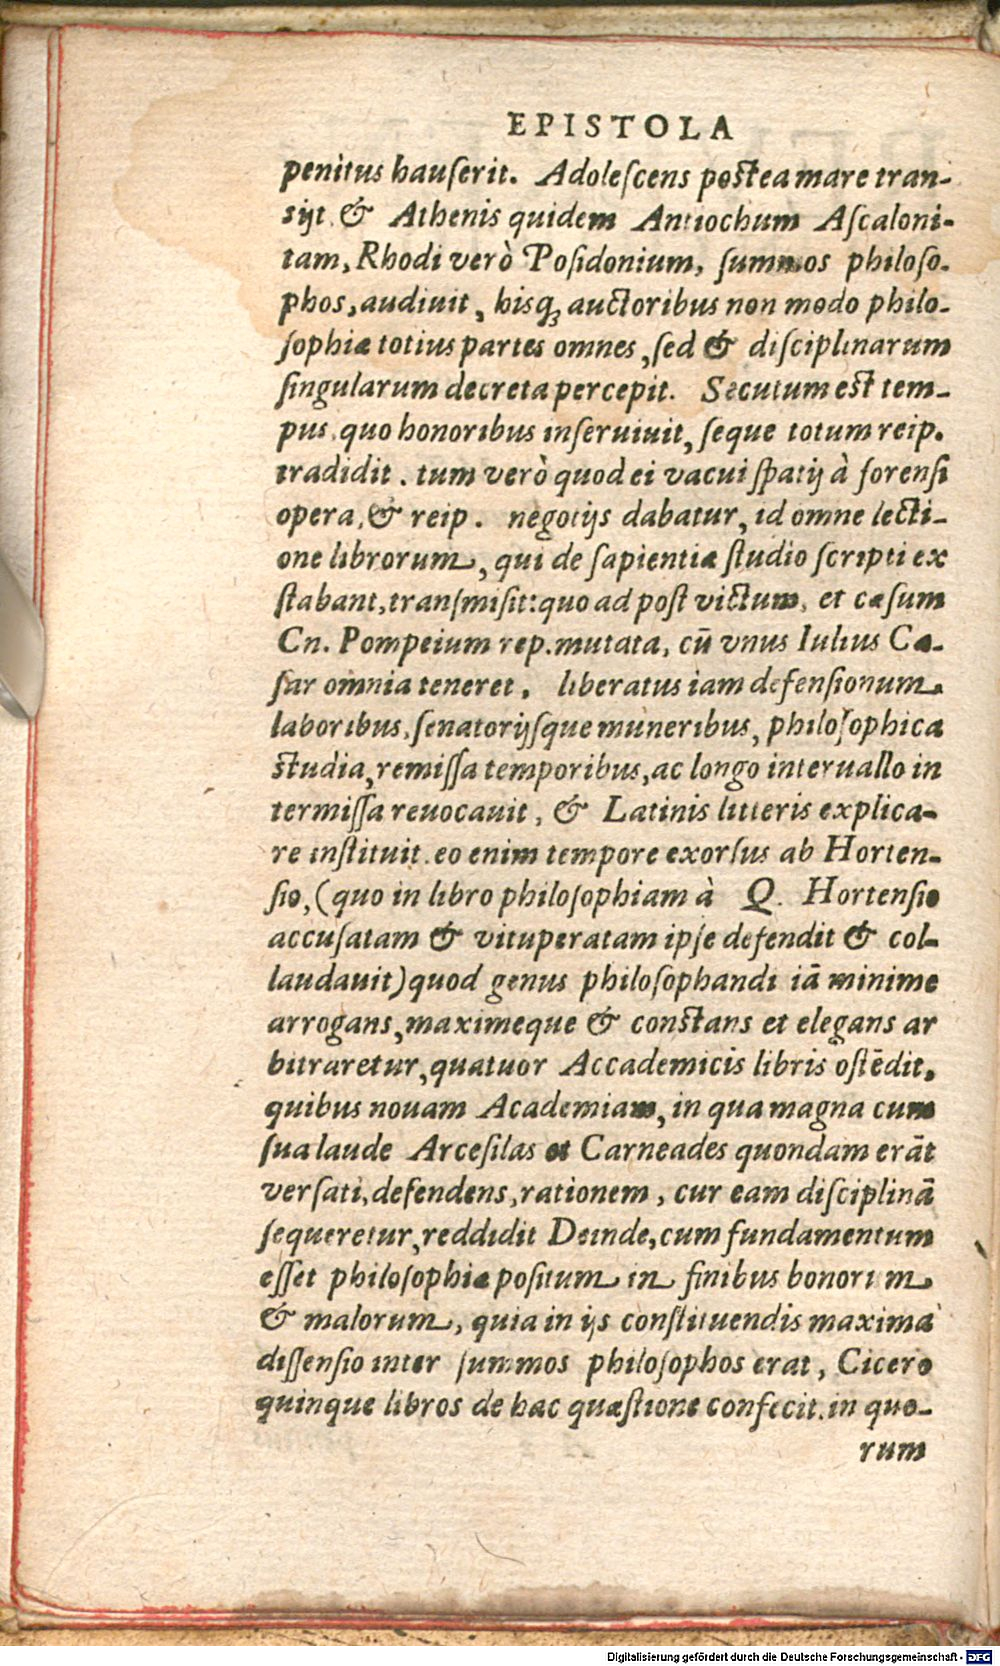 EPISTOLA
penitus hauserit. Adolescens postea mare tran-
sijt & Athenis quidem Antiochum Ascaloni-
tam, Rhodi verò Posidonium, summos philoso-
phos, audiuit, hisq; auctoribus non modo philo-
sophiæ totius partes omnes, sed & disciplinarum
singularum decreta percepit. Secutum est tem-
pus, quo honoribus inseruiuit, seque totum reip.
tradidit. tum verò quod ei vacui spatij à forensi
opera, & reip. negotijs dabatur, id omne lecti-
one librorum, qui de sapientiæ studio scripti ex
stabant, transmisit: quo ad post victum, et cæsum
Cn. Pompeium rep. mutata, cū vnus Iulius Cæ-
sar omnia teneret, liberatus iam defensionum
laboribus, senatorijsque muneribus, philosophica
studia, remissa temporibus, ac longo interuallo in
termissa reuocauit, & Latinis litteris explica-
re instituit. eo enim tempore exorsus ab Horten-
sio, (quo in libro philosophiam à Q. Hortensio
accusatam & vituperatam ipse defendit & col-
laudauit) quod genus philosophandi iā minime
arrogans, maximeque & constans et elegans ar
bitraretur, quatuor Accademicis libris ostēdit,
quibus nouam Academiam, in qua magna cum
sua laude Arcesilas et Carneades quondam erāt
versati, defendens, rationem, cur eam disciplinā
sequeretur, reddidit Deinde, cum fundamentum
esset philosophiæ positum in finibus bonorum
& malorum, quia in ijs constituendis maxima
dissensio inter summos philosophos erat, Cicero
quinque libros de hac quæstione confecit. in quo-
rum
Digitalisierung gefördert durch die Deutsche Forschungsgemeinschaft - DFG